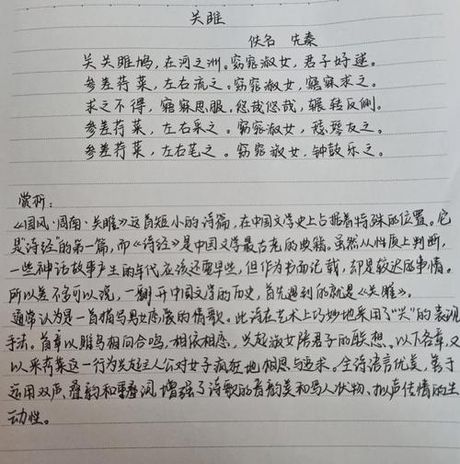 关雎
佚名 先秦
关关雎鸠,在河之洲。窈窕淑女,君子好逑。
参差荇菜,左右流之。窈窕淑女,寤寐求之。
求之不得,寤寐思服,悠哉悠哉,辗转反侧。
参差荇菜,左右采之。窈窕淑女,琴瑟友之。
参差荇菜,左右芼之。窈窕淑女,钟鼓乐之。
赏析:
《国风·周南·关雎》这首短小的诗篇,在中国文学史上占据着特殊的位置。它
是“诗经”的第一篇,而《诗经》是中国文学最古老的典籍。虽然从性质上判断,
一些神话故事产生的年代应该还要早些,但作为书面记载,却是较迟的事情。
所以差不多可以说,一翻开中国文学的历史,首先遇到的就是《关雎》。
通常认为是一首描写男女恋爱的情歌。此诗在艺术上巧妙地采用了“兴”的表现
手法。首章以雎鸟相向合鸣,相依相恋,兴起淑女陪君子的联想。以下各章,又
以采荇菜这一行为兴起主人公对女子疯狂地相思与追求。全诗语言优美,善于
运用双声、叠韵和重叠词,增强了诗歌的音韵美和写人状物、拟声传情的生
动性。